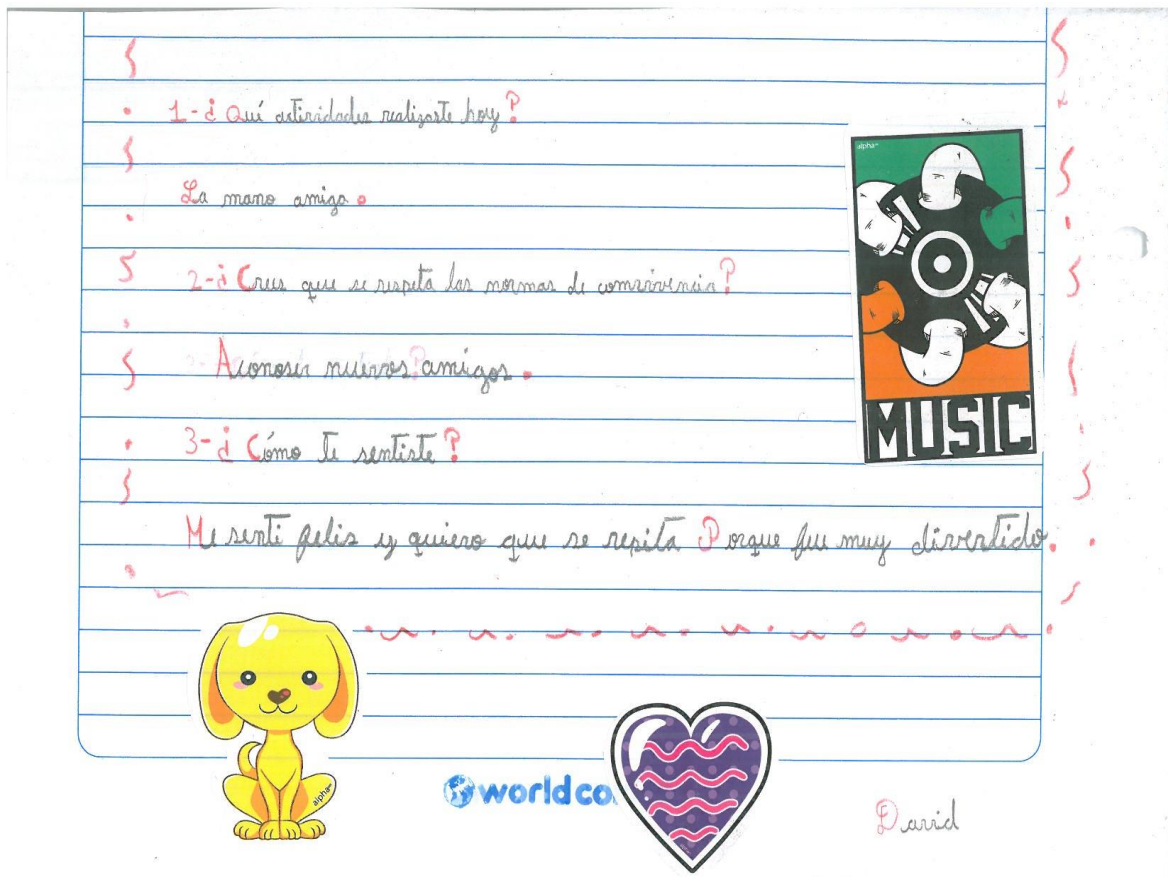 1-¿Qué actividades realizaste hoy?
La mano amiga.
2-¿Crees que se respeta las normas de comvivencia?
Aconoser nuevos amigos.
3-¿Cómo te sentiste?
Me senti felis y quiero que se repita Porque fue muy divertido.
alpha
MUSIC
alpha
worldco
David